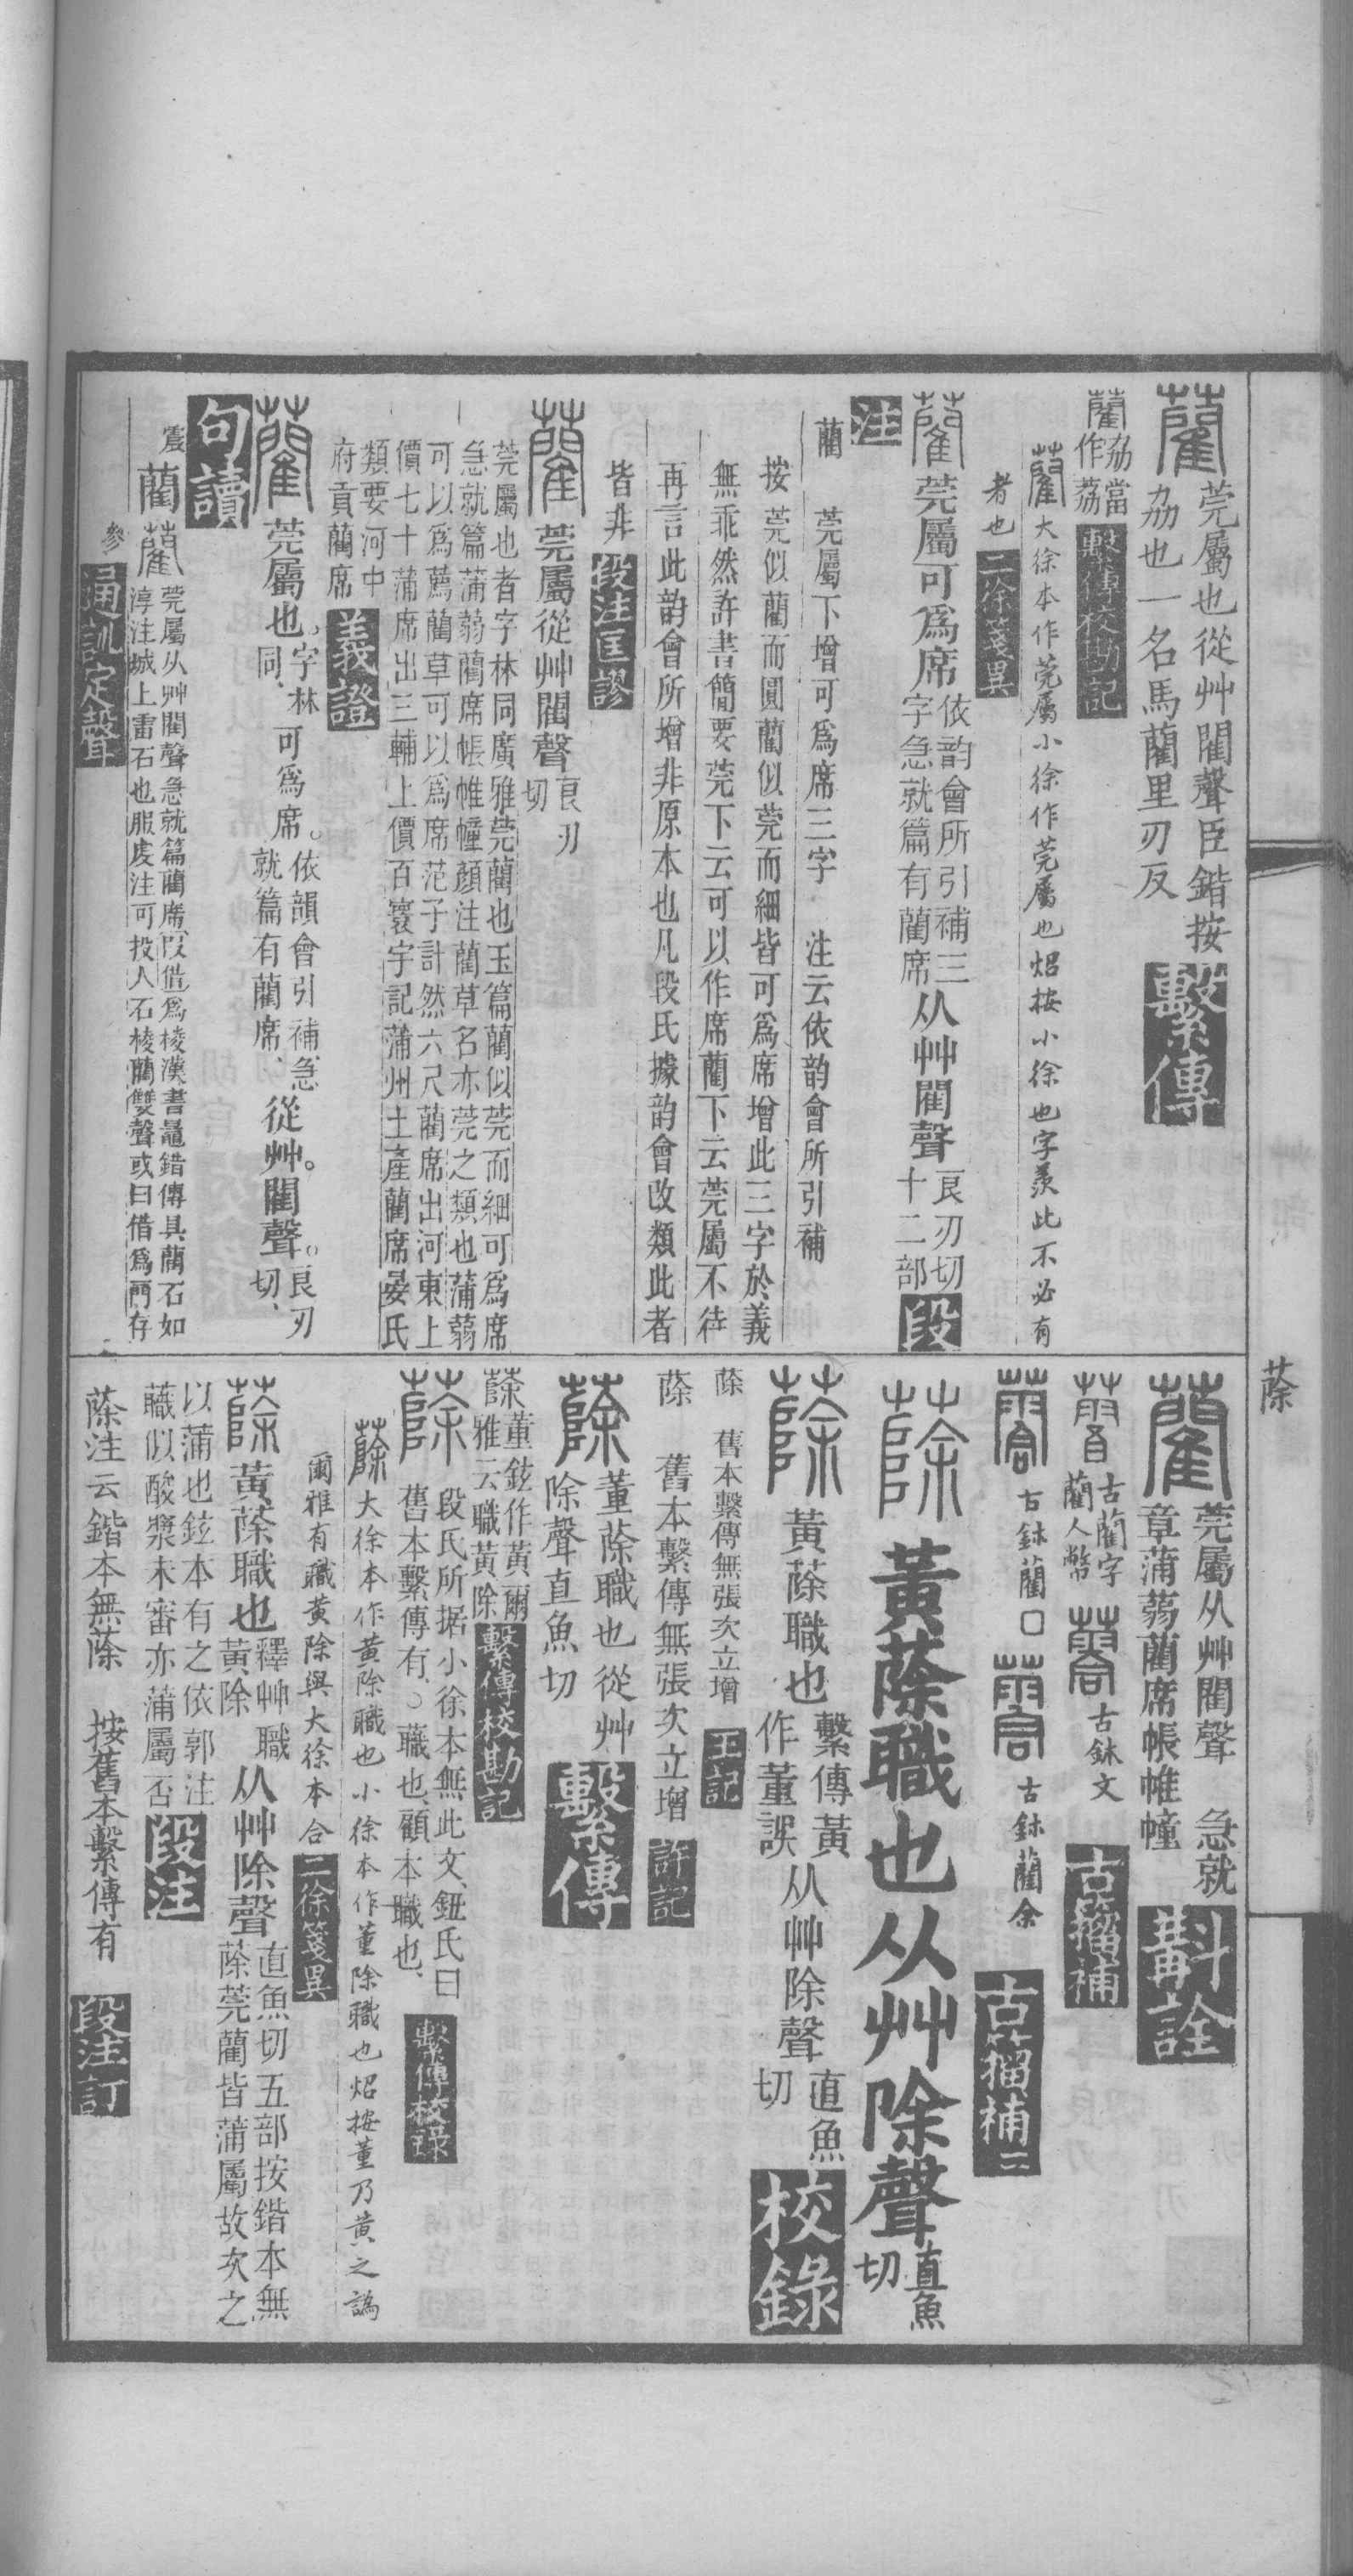 藺
莞屬也從艸閵聲臣鍇按
茘也一名馬藺里刃反
繫傳
藺
茘當
作荔
繫傳校勘記
藺大徐本作莞屬小徐作莞屬也炤按小徐也字羨此不必有
者也
二徐箋異
藺
莞屬可爲席
依韵會所引補三
字急就篇有藺席
从艸閵聲
良刃切
十二部
段
注
藺 莞屬下增可爲席三字 注云依韵會所引補
按莞似藺而圓藺似莞而細皆可爲席增此三字於義
無乖然許書簡要莞下云可以作席藺下云莞屬不待
再言此韵會所增非原本也凡段氏據韵會改類此者
皆非
段注匡謬
藺
莞屬從艸閵聲
良刃
切
莞屬也者字林同廣雅莞藺也玉篇藺似莞而細可爲席
急就篇蒲蒻藺席帳帷幢顏注藺草名亦莞之類也蒲蒻
可以爲薦藺草可以爲席范子計然六尺藺席出河東上
價七十蒲席出三輔上價百寰宇記蒲州土產藺席晏氏
類要河中
府貢藺席
義證
藺
莞屬也
字林
同
可爲席。
依韻會引補急
就篇有藺席
從艸。閵聲。
良刃
切
句讀
震 藺
藺
莞屬从艸閵聲急就篇藺席叚借爲棱漢書鼂錯傳具藺石如
淳注城上雷石也服虔注可投人石棱藺雙聲或曰借爲閵存
參
通訓定聲
蒢
藺
莞屬从艸閵聲 急就
章蒲蒻藺席帳帷幢
斠詮
古藺字
藺人幣
古鉥文
古籀補
古鉥藺口
古鉥藺余
古籀補二
蒢
黃蒢職也从艸除聲
直魚
切
蒢
黃蒢職也
繫傳黃
作董誤
从艸除聲
直魚
切
校錄
蒢 舊本繫傳無張次立增
王記
蒢 舊本繫傳無張次立增
許記
蒢
董蒢職也從艸
除聲直魚切
繫傳
蒢
董鉉作黃爾
雅云職黃除
繫傳校勘記
蒢
段氏所据小徐本無此文鈕氏曰
舊本繫傳有○蘵也顧本職也
繫傳校錄
蒢大徐本作黃除職也小徐本作董除職也炤按董乃黃之譌
爾雅有職黃除與大徐本合
二徐箋異
蒢
黃蒢職也
釋艸職
黃除
从艸除聲
直魚切五部按鍇本無
蒢莞藺皆蒲屬故次之
以蒲也鉉本有之依郭注
蘵似酸漿未審亦蒲屬否
段注
蒢注云鍇本無蒢 按舊本繫傳有
段注訂